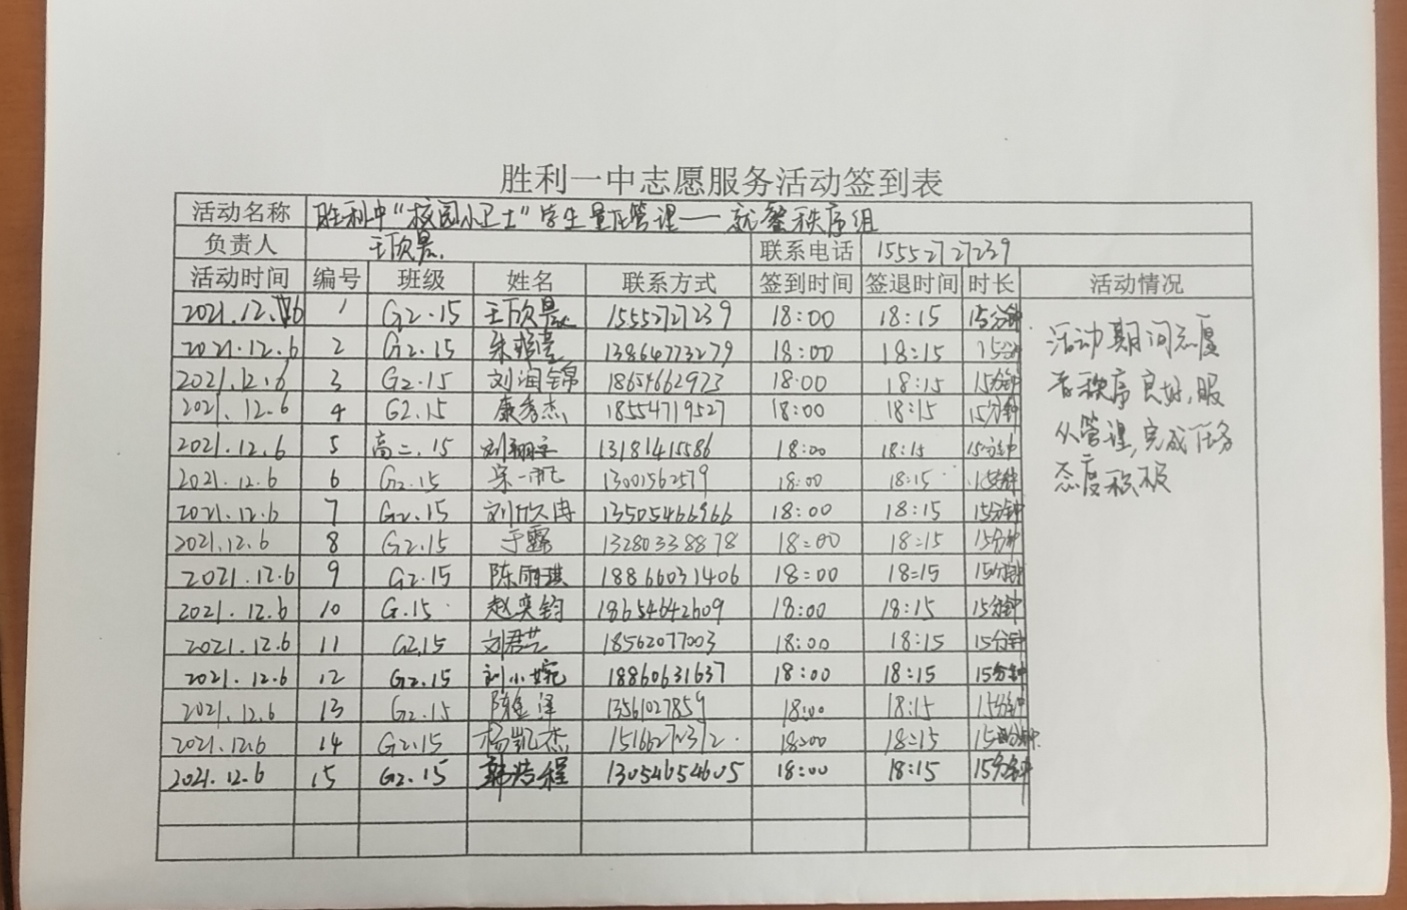 胜利一中志愿服务活动签到表
活动名称 胜利中“校园小卫士”学生量化管理——就餐秩序组
负责人 王欣晨 联系电话 15552727239
活动时间 编号 班级 姓名 联系方式 签到时间 签退时间 时长 活动情况
2021.12.6 1 G2.15 王欣晨 15552727239 18:00 18:15 15分钟
2021.12.6 2 G2.15 朱 13864773279 18:00 18:15 15分钟
2021.12.6 3 G2.15 刘润锦 18654662923 18:00 18:15 15分钟
2021.12.6 4 G2.15 康秀杰 18554719527 18:00 18:15 15分钟
2021.12.6 5 高二.15 刘 13181415586 18:00 18:15 15分钟
2021.12.6 6 G2.15 宋一帆 13001562579 18:00 18:15 15分钟
2021.12.6 7 G2.15 刘欣冉 13505466966 18:00 18:15 15分钟
2021.12.6 8 G2.15 于露 13280338878 18:00 18:15 15分钟
2021.12.6 9 G2.15 陈雨琪 18866031406 18:00 18:15 15分钟
2021.12.6 10 G.15 赵奕钧 18654642609 18:00 18:15 15分钟
2021.12.6 11 G2.15 刘君芸 18562077003 18:00 18:15 15分钟
2021.12.6 12 G2.15 刘小婉 18860631637 18:00 18:15 15分钟
2021.12.6 13 G2.15 陈 泽 13561027859 18:00 18:15 15分钟
2021.12.6 14 G2.15 杨凯杰 18:00 18:15 15分钟
2021.12.6 15 G2.15 韩浩程 13054654605 18:00 18:15 15分钟
活动期间志愿
者秩序良好,服
从管理,完成任务
态度积极